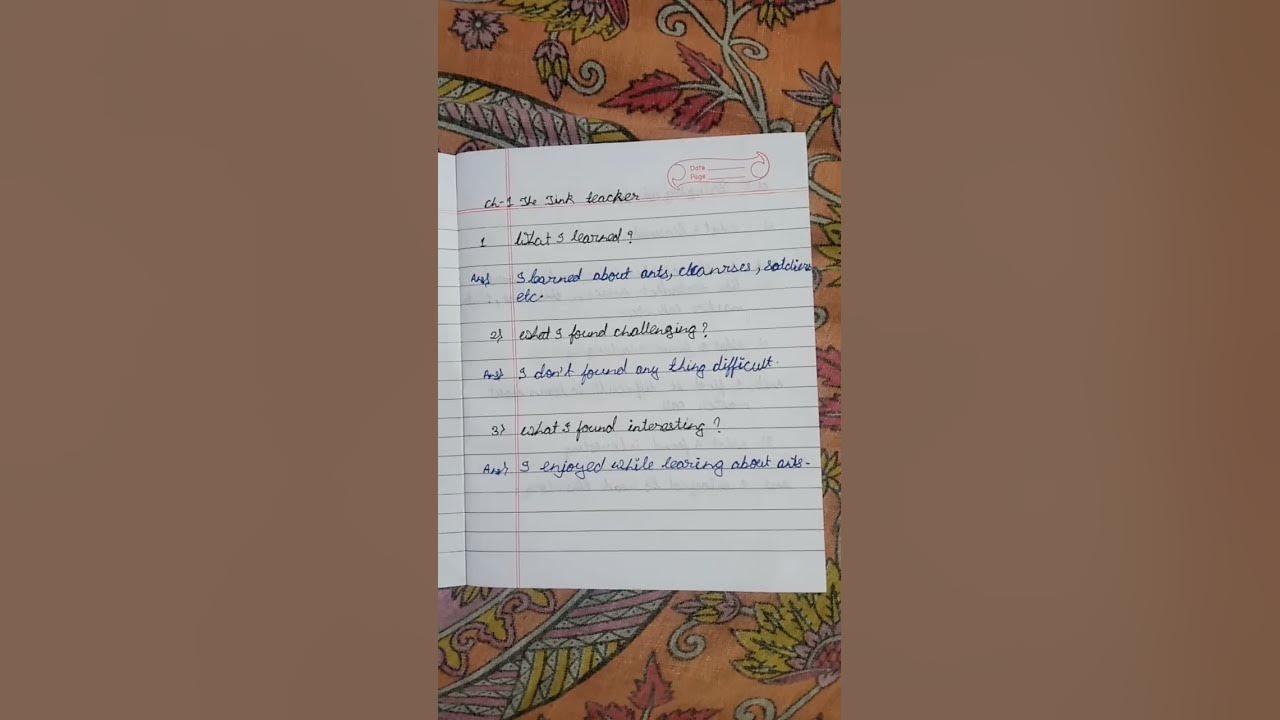 Date
Page
Ch-1 The Tink teacher
1 What I learned?
Ans) I learned about ants, cleanrses, soldiers
etc.
2) What I found challenging?
Ans) I don't found any thing difficult.
3) What I found interesting?
Ans) I enjoyed while learing about ants.